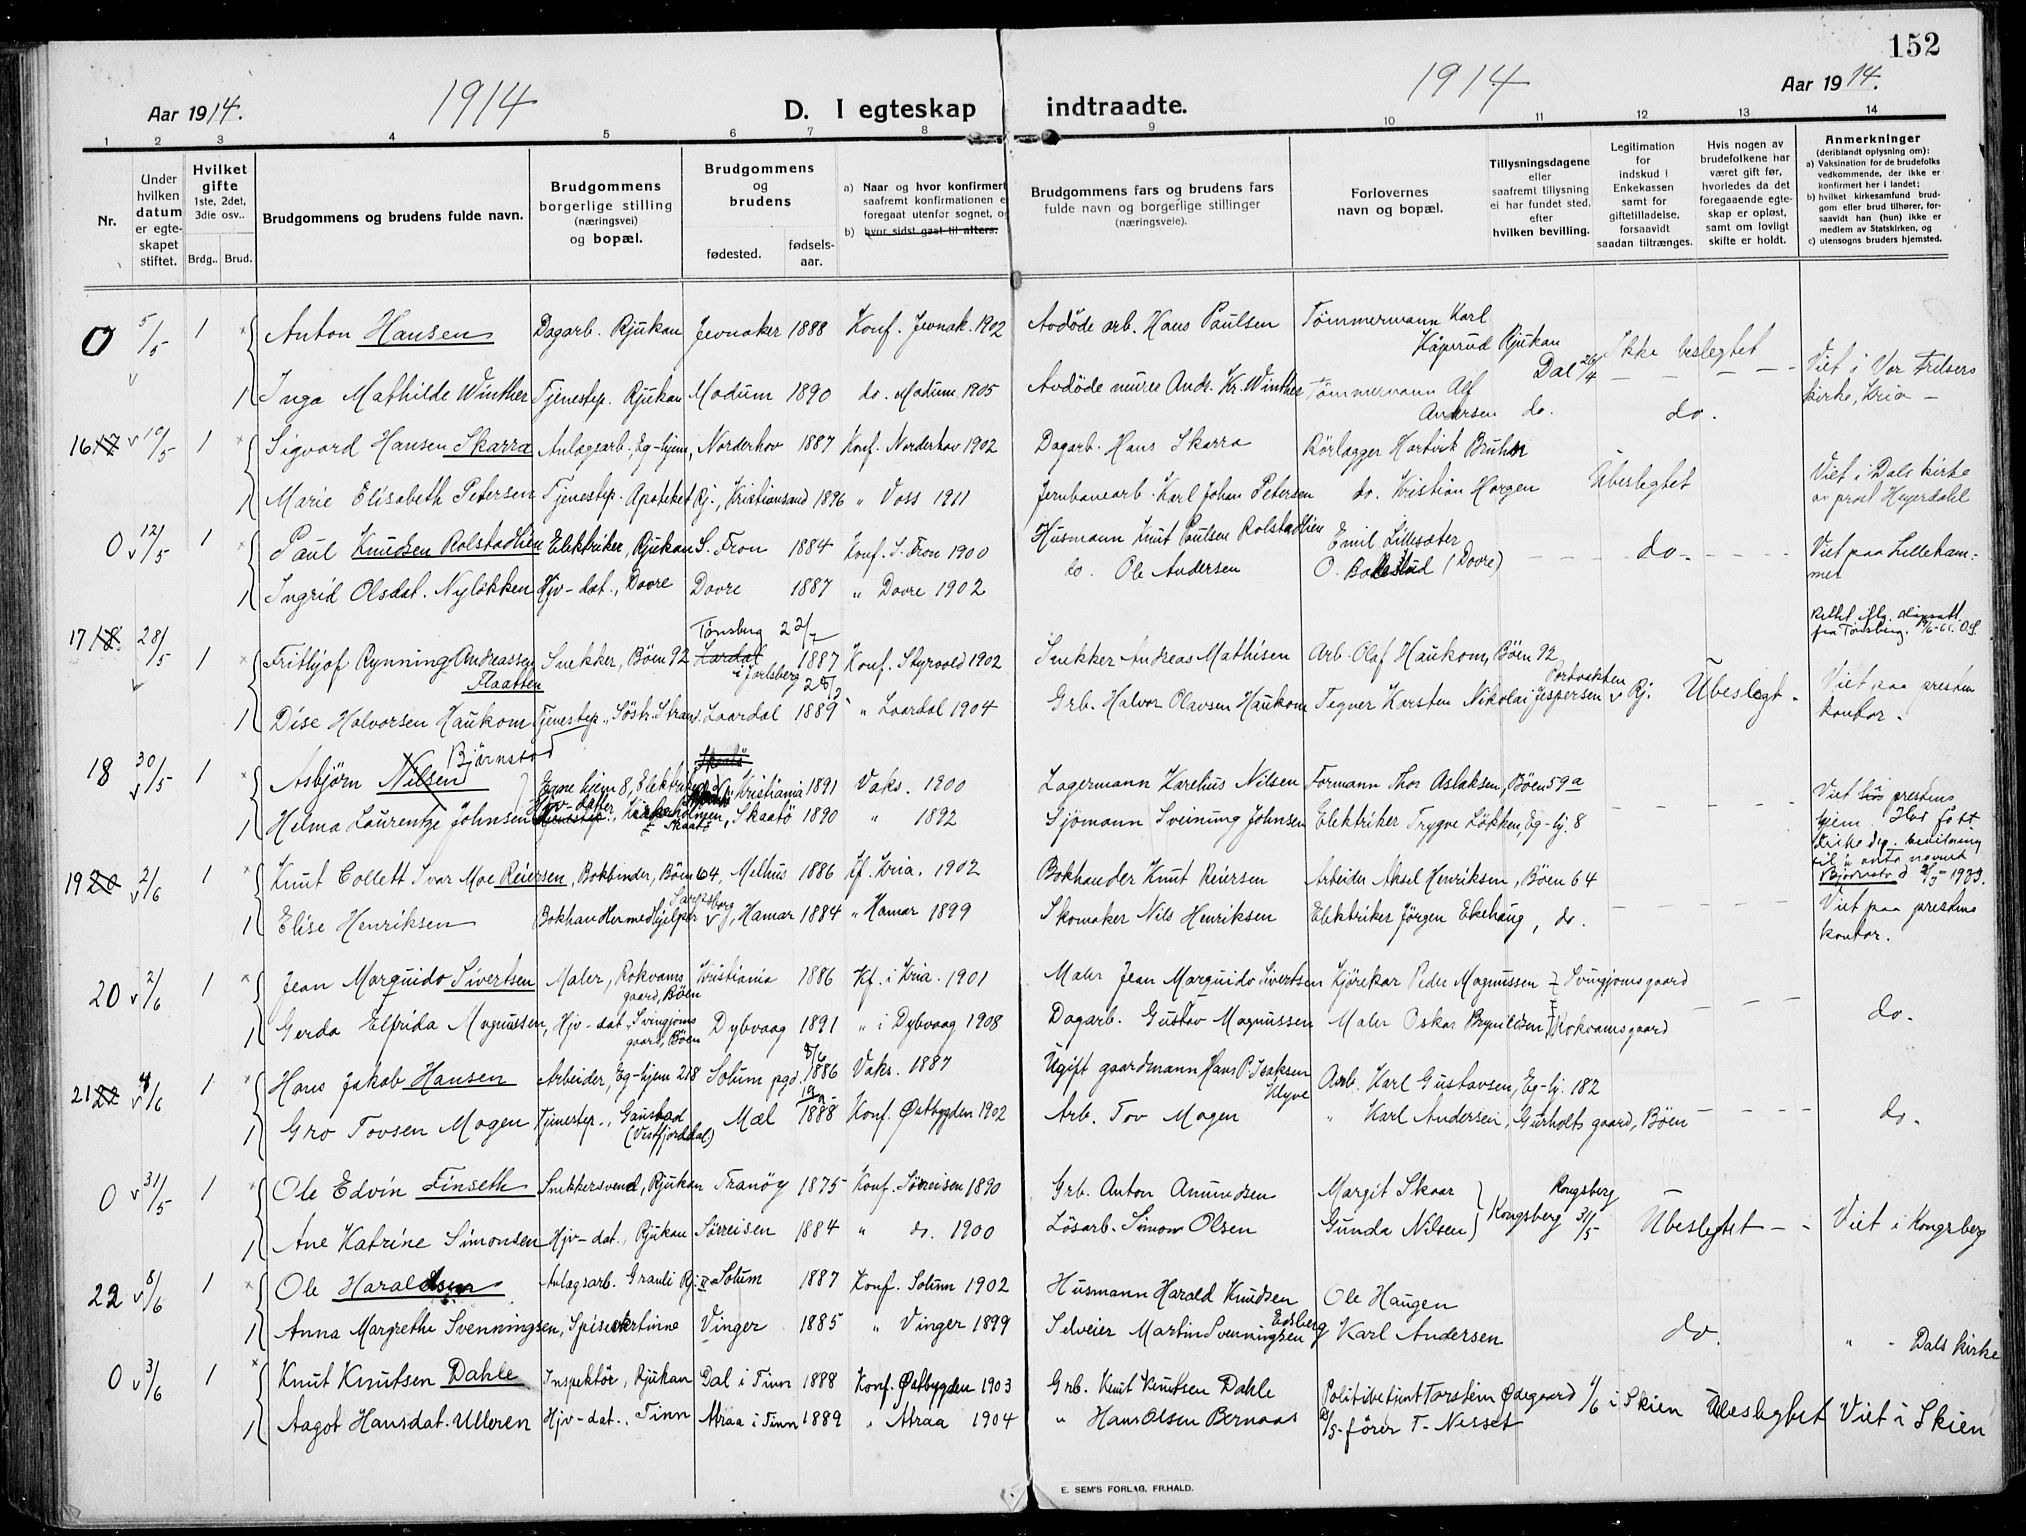 152
Aar 1914.
1914
D. I egteskap indtraadte.
1914
Aar 1914.
1 2 3 4 5 6 7 8 9 10 11 12 13 14
Nr.
Under hvilken datum er egteskapet stiftet.
Hvilket gifte 1ste, 2det, 3die osv..
Brdg.. Brud.
Brudgommens og brudens fulde navn.
Brudgommens borgerlige stilling (næringsvei) og bopæl.
Brudgommens og brudens
fødested.
fødselsaar.
a) Naar og hvor konfirmert saafremt konfirmationen e foregaat utenfor sognet, og
b) hvor sidst gaat til alters.
Brudgommens fars og brudens fars fulde navn og borgerlige stillinger (næringsveie).
Forlovernes navn og bopæl.
Tillysningsdagene eller saafremt tillysning ei har fundet sted, efter hvilken bevilling.
Legitimation for indskud i Enkekassen samt for giftetilladelse, forsaavidt saadan tiltrænges.
Hvis nogen av brudefolkene har været gift før, hvorledes da det foregaaende egteskap er opløst, samt om lovligt skifte er holdt.
Anmerkninger (deriblandt oplysning om):
a) Vaksination for de brudefolks vedkommende, der ikke er konfirmert her i landet;
b) hvilket kirkesamfund brudgom eller brud tilhører, forsaavidt han (hun) ikke er medlem av Statskirken, og
c) utensogns bruders hjemsted.
0 5/5 1 Anton Hansen Dagarb. Rjukan Jevnaker 1888 Konf. Jevnak. 1902 Avdöde arb. Hans Paulsen Tømmermann Karl Kåpsrud Rjukan Dal 26/4 Ikke beslegtet Viet i Vor Frelsers kirke, Kria
1 Inga Mathilde Winther Tjenestep. Rjukan Modum 1890 do. Modum 1905 Avdöde murer Andr. Kr. Winther Tømmermann Alf Andersen do. do.
16 17 10/5 1 Sigvard Hansen Skarra Anlægsarb., Eg-hjem, Norderhov 1887 Konf. Norderhov 1902 Dagarb. Hans Skarra Rörlægger Hartvik Bruhn Ubeslegtet Viet i Dals kirke av prost Heyerdahl
1 Marie Elisabeth Petersen Tjenestep. Apoteket Rj., Kristiansand 1896 " Voss 1911 Jernbanearb. Karl Johan Petersen do. Kristian Horgen
0 12/5 1 Paul Knudsen Rolstadlien Elektriker, Rjukan S. Fron 1884 Konf. S. Fron 1900 Husmann Knut Paulsen Rolstadlien Emil Lillesæter do. Viet paa Lillehammer
1 Ingrid Olsdat. Nylökken Hjv-dat., Dovre Dovre 1887 " Dovre 1902 do. Ole Andersen O. (Dovre)
17 18 28/5 1 Frithjof Rynning Andreassen Flaatten Snekker, Böen 92 Tønsberg Lardal i Jarlsberg 1887 Konf. Styrvold 1902 Snekker Andreas Mathisen Arb. Olaf Haukom, Böen 92 Ubeslegt. Viet paa prestens kontor.
1 Dise Halvorsen Haukom Tjenestep., Söstr. Strand. Laardal 1889 " Laardal 1904 Grb. Halvor Olavsen Haukom Tegner Karsten Nikolai Jespersen Rj.
18 30/5 1 Asbjörn Nilsen Bjørnstad Egne hjem 8, Elektriker Kristiania 1891 Vaks. 1900 Lagermann Karelius Nilsen Formann Thor Aslaksen, Böen 59a Viet hos prestens hjem. Har fått Kirkedep. bevilgning til å anta navnet Bjørnstad 1933.
1 Helma Laurentze Johnsen Hjv-datter Tjenestep., Skaatö 1890 " 1892 Sjömann Sveinung Johnsen Elektriker Trygve Løkken, Eg-hj. 8
19 20 2/6 1 Knut Collett Ivar Moe Reiersen, Bokbinder, Böen 64, Melhus 1886 Kf. Kria. 1902 Bokhandler Knut Reiersen Arbeider Aksel Henriksen, Böen 64 Viet paa prestens kontor.
1 Elise Henriksen Bokhandlermedhjelper Sarpsborg, Hamar 1884 " Hamar 1899 Skomaker Nils Henriksen Elektriker Jörgen Ekehaug, do.
20 2/6 1 Jean Marquido Sivertsen Maler, Rokvamsgaard, Böen Kristiania 1886 Kf. i Kria. 1901 Maler Jean Marquido Sivertsen Kjörekar Peder Magnussen Svingjomsgaard do.
1 Gerda Elfrida Magnussen, Hjv-dat., Svingjomsgaard, Böen Dybvaag 1891 " i Dybvaag 1908 Dagarb. Gustav Magnussen Maler Oskar Brynildsen Rokvamsgaard
21 22 4/6 1 Hans Jakob Hansen Arbeider, Eg-hjem 218 Solum pgd. 1886 Vaks. 1887 Ugift gaardmann Hans P. Isaksen Klyve Arb. Karl Gustavsen, Eg-hj. 182 do.
1 Gro Tovsen Mogen Tjenestep., Gausbad (Vestfjorddal) Mæl 1888 Konf. Østbygden 1902 Arb. Tov Mogen " Karl Andersen, Gurholts gaard, Böen
0 31/5 1 Ole Edvin Finseth Snekkersvend, Rjukan Tranöy 1875 Konf. Sörreisen 1890 Grb. Anton Amundsen Margit Skaar Kongsberg Kongsberg 31/5 Ubeslegtet Viet i Kongsberg
1 Ane Katrine Simonsen Hjv-dat., Rjukan Sörreisen 1884 " do. 1900 Lösarb. Simon Olsen Gunda Nilsen
22 8/6 1 Ole Haraldsen Anlægsarb. Grauli Rj. Solum 1887 Konf. Solum 1902 Husmann Harald Knudsen Ole Haugen do. " Dals kirke
1 Anna Margrethe Svenningsen, Spisevertinne Vinger 1885 " Vinger 1899 Selveier Martin Svenningsen Edsberg Karl Andersen
0 3/6 1 Knut Knutsen Dahle Inspektör, Rjukan Dal i Tinn 1888 Konf. Østbygden 1903 Grb. Knut Knutsen Dahle Politibetjent Torstein Ødegaard i Skien Ubeslegtet Viet i Skien
1 Aagot Hansdat. Ulleren Hjv-dat., Tinn Atraa i Tinn 1889 " Atraa 1904 " Hans Olsen Bernaas
E. SEM'S FORLAG, FR.HALD.